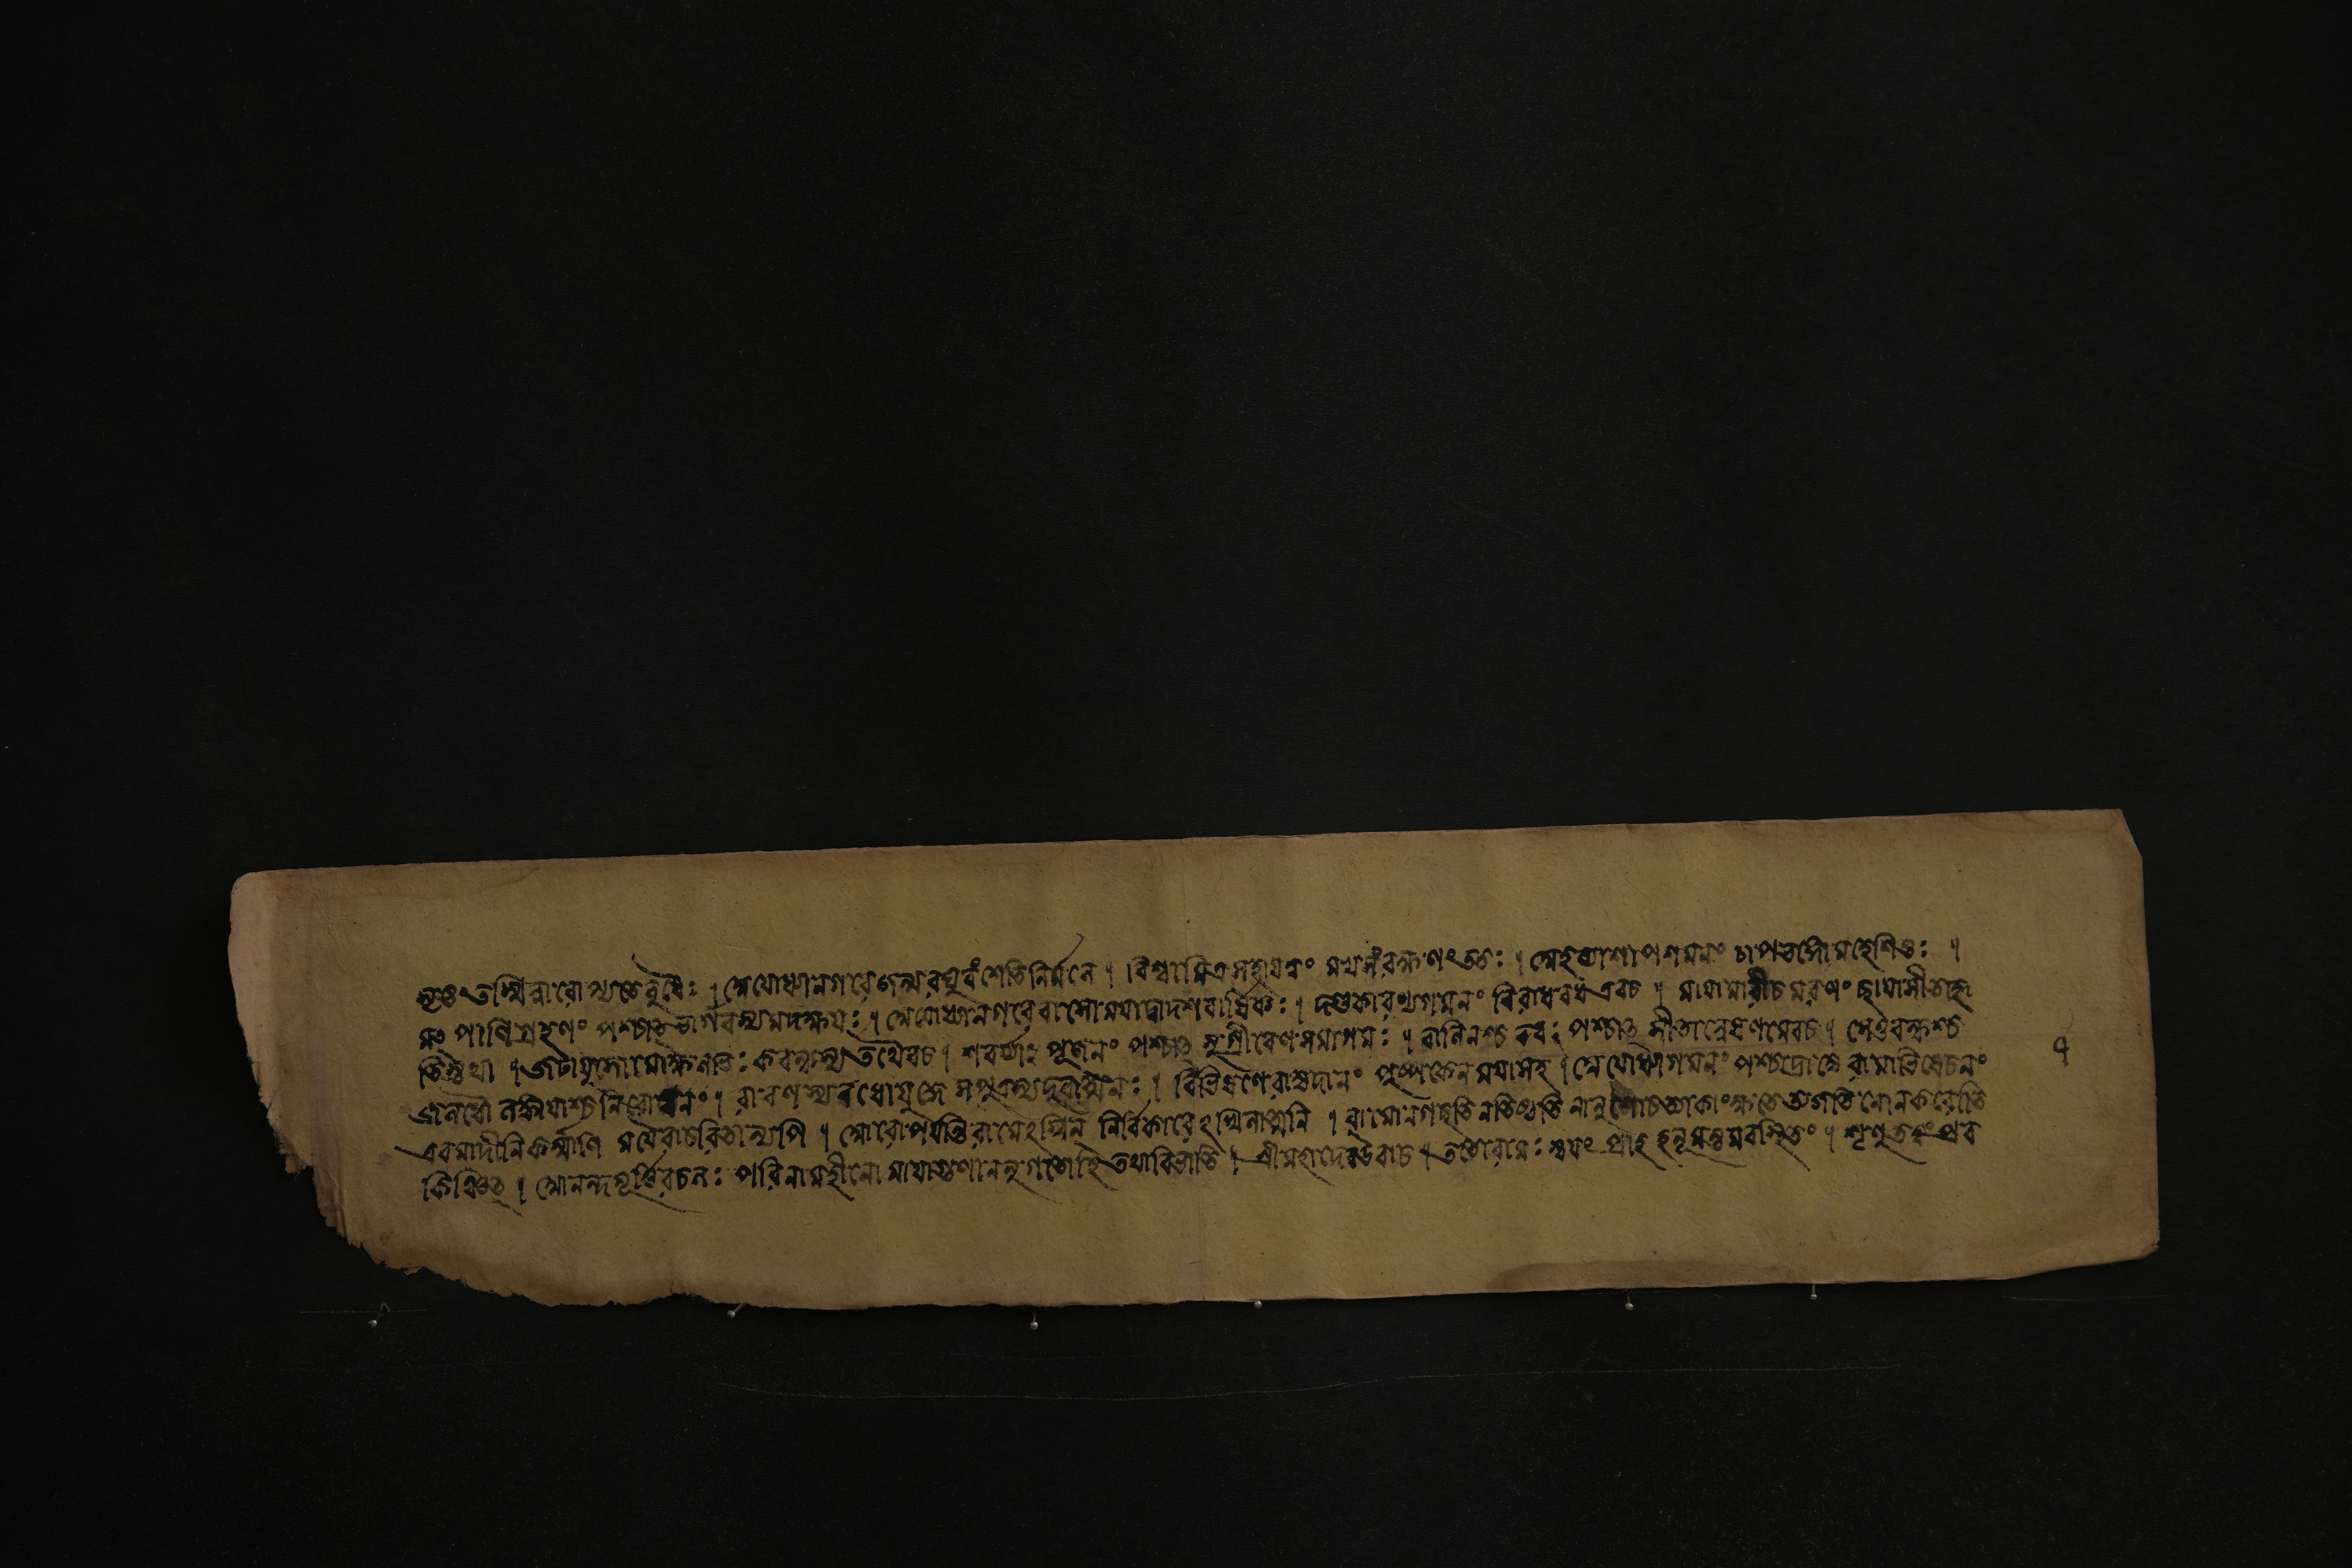 সৃষ্টং তস্মিন্নারোপ্যতেবুধৈঃ । অযোধ্যানগরেজন্ম রঘুবংশেতিনির্ম্মলে । বিশ্বামিত্রসহায়ত্বং মখসংরক্ষণংততঃ । অহল্যাশাপশমনং চাপভঙ্গোমহেশিতুঃ ।
মৎ পাণিগ্রহণং পশ্চাত্ ভার্গবস্যমদক্ষয়ঃ । অযোধ্যানগরেবাসো ময়াদ্বাদশবার্ষিকঃ । দণ্ডকারণ্যগমনং বিরাধবধএবচ । মায়ামারীচমরণং ছায়াসীতাহৃ
তিস্তথা । জটায়ুসোমোক্ষলাভঃ কবন্ধস্যতথৈবচ । শবর্য্যাঃ পূজনং পশ্চাত্ সুগ্রীবেণসমাগমঃ । বালিনশ্চ বধঃ পশ্চাত্ সীতান্বেষণমেবচ । সেতুবন্ধশ্চ
জলধৌ লঙ্কায়াশ্চনিরোধনং । রাবণস্যবধোযুদ্ধে সপুত্রস্যদুরাত্মনঃ । বিভিষণেরাজ্যদানং পুষ্পকেনময়াসহ । অযোধ্যাগমনং পশ্চাদ্রাজ্যে রামাভিষেচনং
এবমাদীনিকর্ম্মাণি ময়ৈবাচরিতান্যপি । আরোপয়ন্তিরামেঽস্মিন্ নির্বিকারেঽখিলাত্মনি । রামোনগচ্ছতিনতিষ্ঠতি নানুশোচত্যাকাংক্ষতেত্যজতি নোনকরোতি
কিঞ্চিত্ । আনন্দমূর্ত্তিরচলঃ পরিণামহীনো মায়াগুণাননুগতোহি তথাবিভাতি । শ্রীমহাদেবউবাচ । ততোরামঃ স্বয়ং প্রাহ হনূমন্তমবস্থিতং । শৃণুতত্ত্বং প্রব
৭